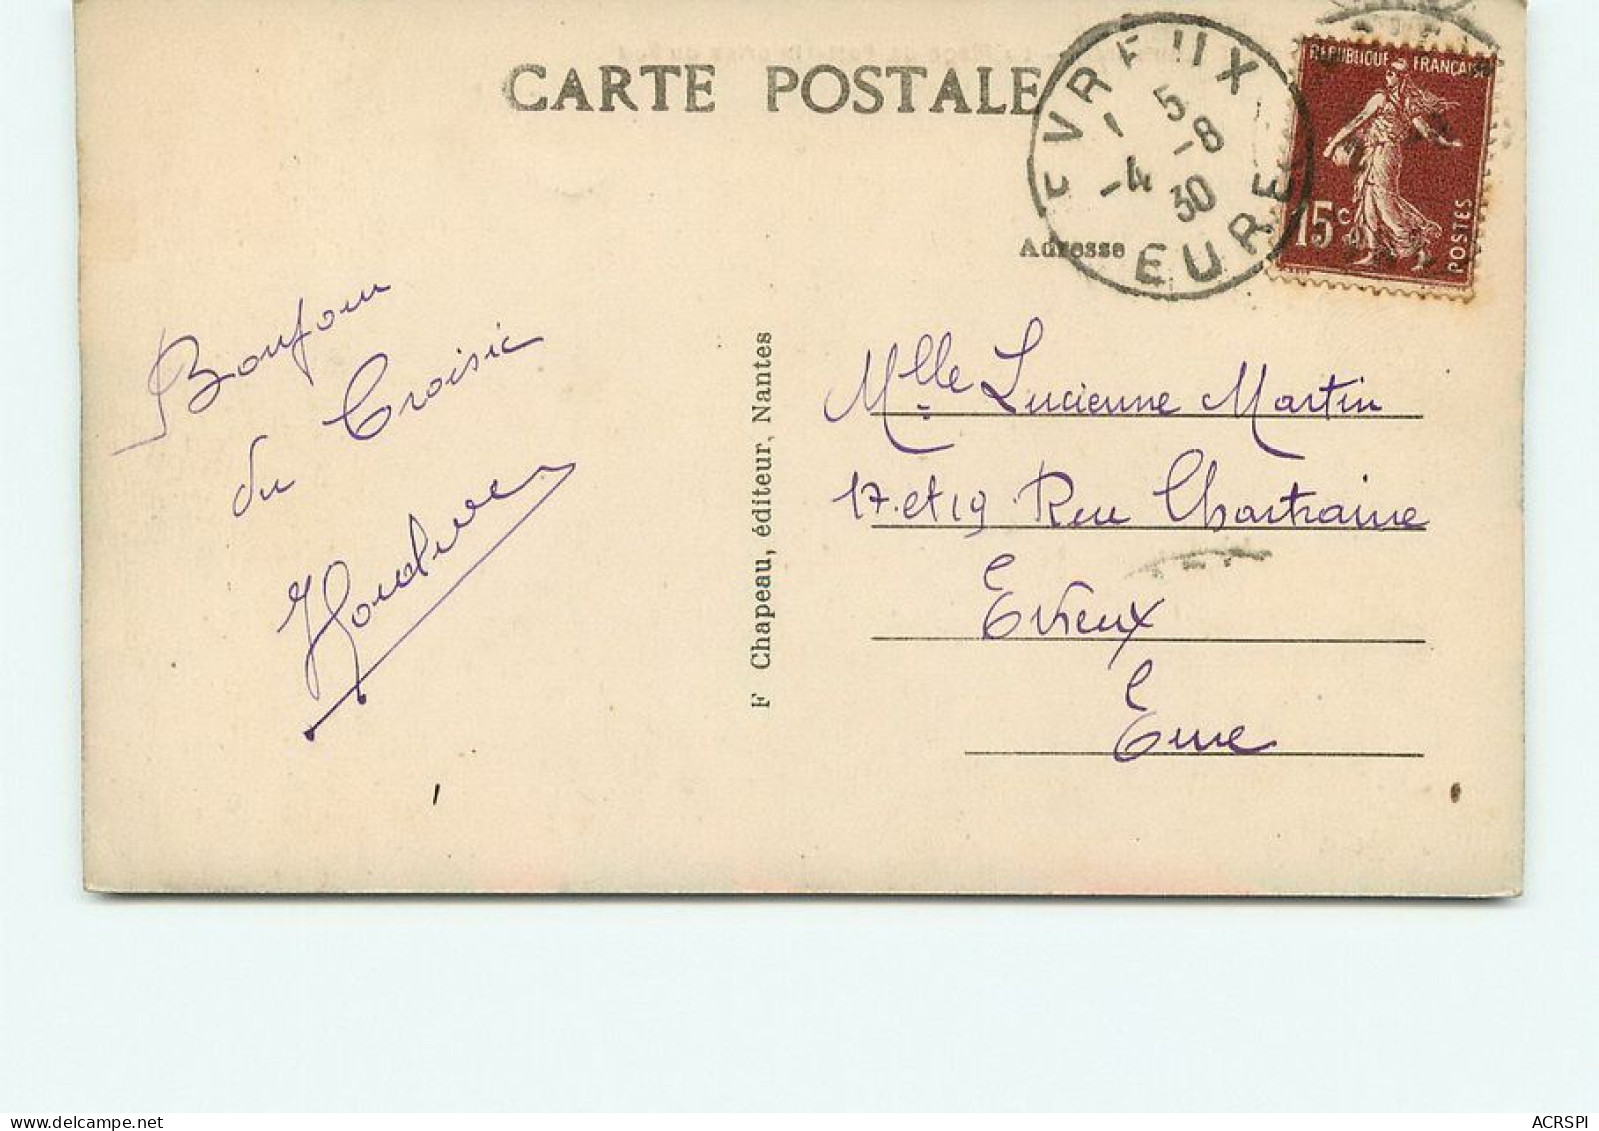 CARTE POSTALE
EVREUX
5-8
30
EURE
RÉPUBLIQUE FRANÇAISE
15c
POSTES
Adresse
Bonjour
du Croisic
F Chapeau, éditeur, Nantes
Mlle Lucienne Martin
17 et 19 Rue Chartraine
Evreux
Eure
ACRSPI